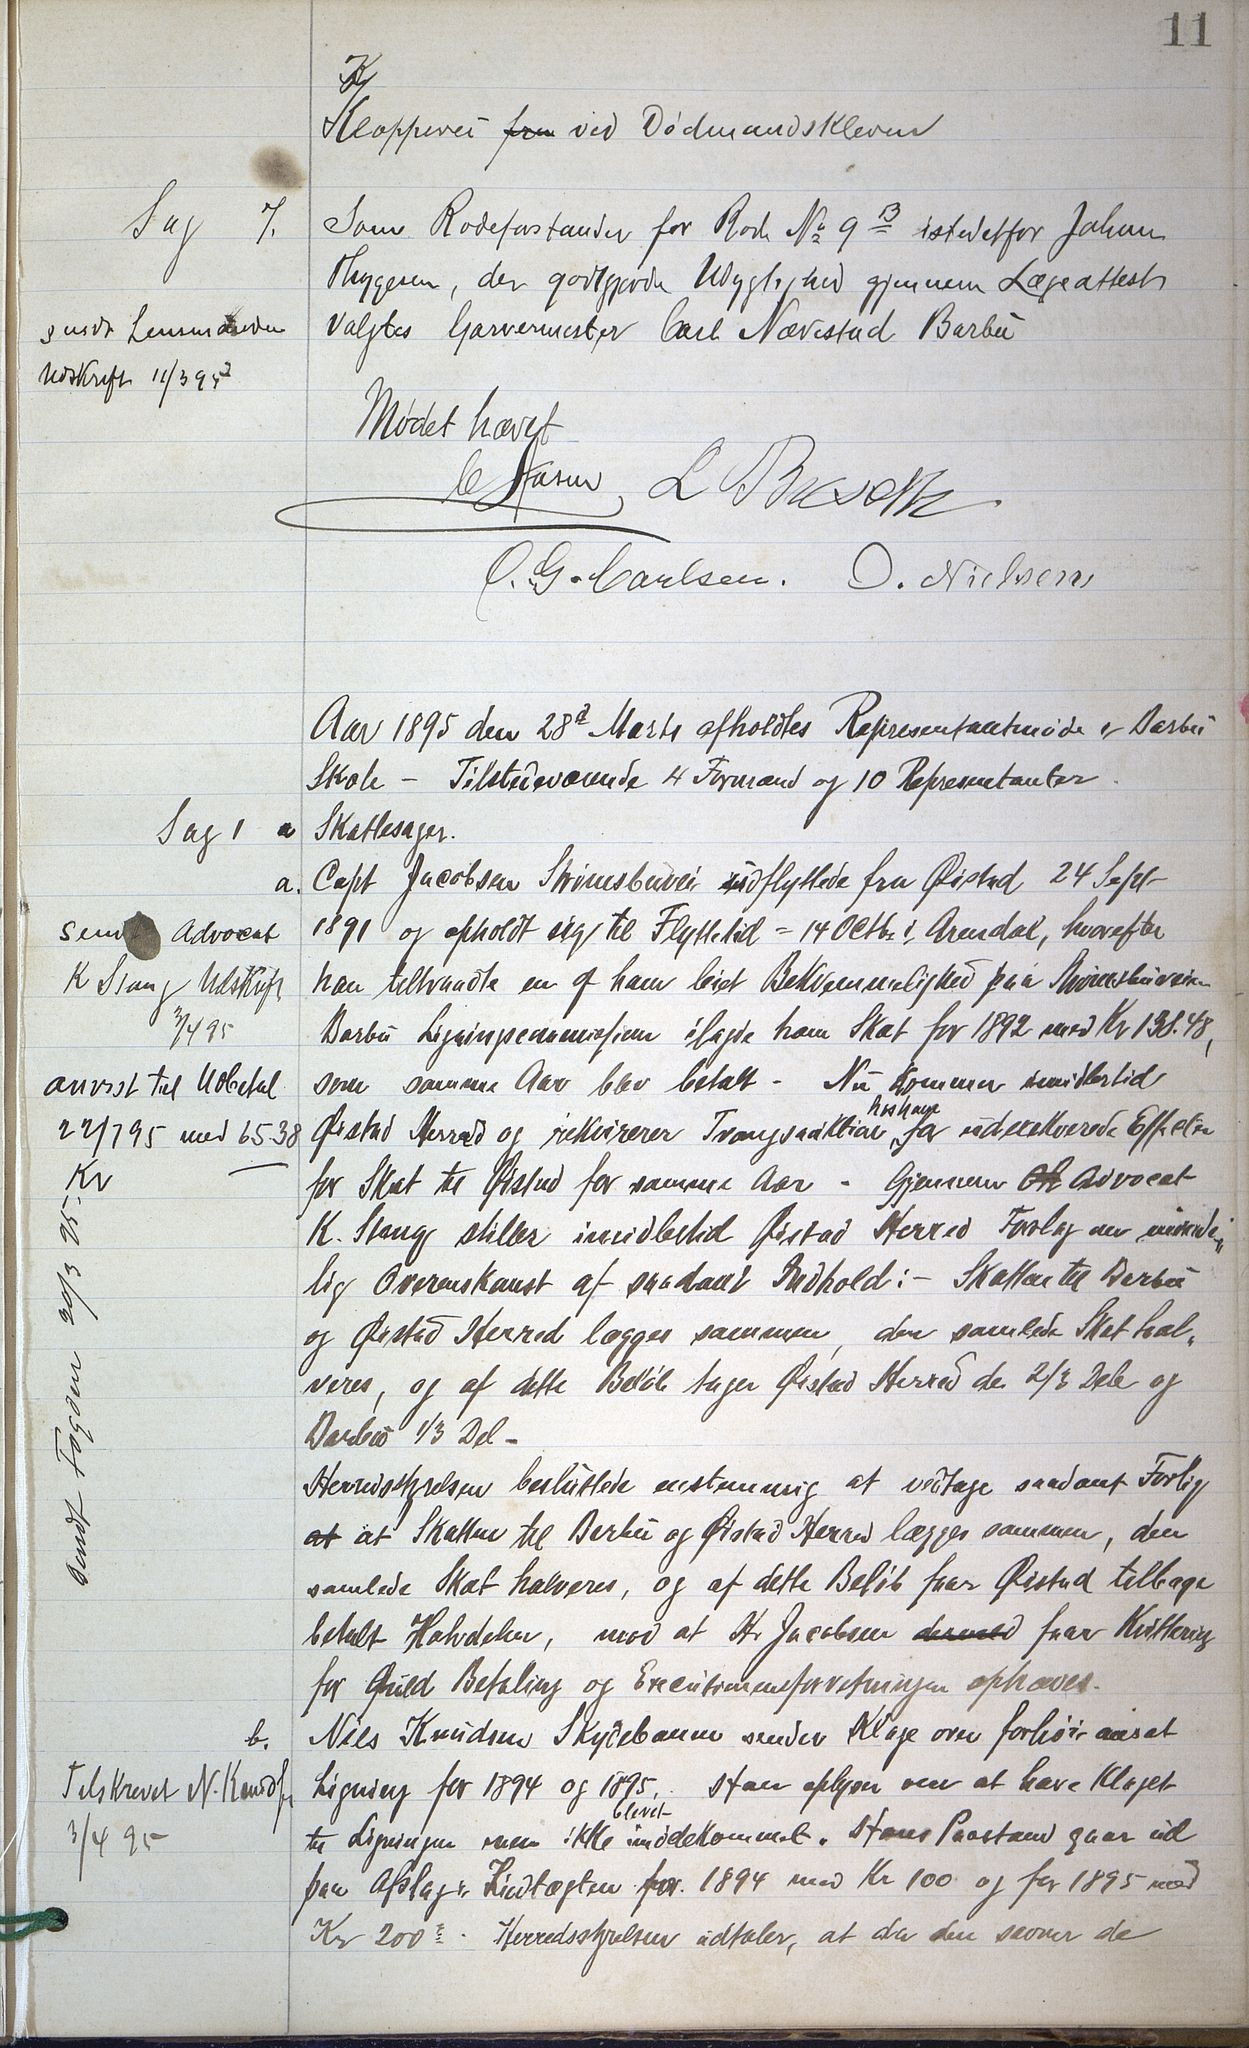 11
Kloppevei fra ved Dødmandskleven
Sag 7. Som Rodeforstander for Rode No 9 B istedetfor Johan
Thygesen, der godtgjorde Udygtighed gjennem Lægeattest
valgtes Garvermester Carl Nævestad Barbu
sendt Lensmanden
Udskrift 11/3 95
Mødet hævet
L Busch
O. G. Carlsen. O. Nielsen
Aar 1895 den 28d Marts afholdtes Representantmøde i Barbu
Skole – Tilstedeværende 4 Formænd og 10 Representanter.
Sag 1 a Skattesager.
a. Capt Jacobsen Strømsbuvei udflyttede fra Øistad 24 Sept
1891 og opholdt sig til Flyttetid = 14 Octbr i Arendal, hvorefter
han tiltraadte en af ham leiet Bekvemmelighed paa Strømsbuveien
Barbu Ligningscommission ilagde ham Skat for 1892 med Kr 138.48,
som samme Aar blev betalt – Nu kommer imidlertid
Øistad Herred og rekvirerer Tvangsauktion hos ham for udexekverede Effecter
for Skat til Øistad for samme Aar – Gjennem Advocat
K. Stang stiller imidlertid Øistad Herred Forslag om minde„
lig Overenskomst af saadant Indhold: – Skatten til Barbu
og Øistad Herred lægges sammen, den samlede Skat hal„
veres, og af dette Beløb tager Øistad Herred de 2/3 Dele og
Barbu 1/3 Del –
sendt Advocat
K Stang Udskrift
3/4 95
anvist til Udbetal
22/7 95 med 65.38
Kr
sendt Fogden 30/3 95
Herredsstyrelsen besluttede enstemmig at vedtage saadant Forlig
at at Skatten til Barbu og Øistad Herred lægges sammen, den
samlede Skat halveres, og af dette Beløb faar Øistad tilbage
betalt Halvdelen, mod at Hr Jacobsen dermed faar Kvittering
for fuld Betaling og Executionsforretningen ophæves.
b. Niels Knudsen Skydebanen sender Klage over forhøi ansat
Ligning for 1894 og 1895. Han oplyser om at have klaget
til Ligningen men ikke blevet imødekommet. Hans Paastand gaar ud
paa Afslag i Indtægten for 1894 med Kr 100 og for 1895 med
Kr 200 . Herredsstyrelsen udtaler, at da den savner de
Tilskrevet N. Knudsen
3/4 95